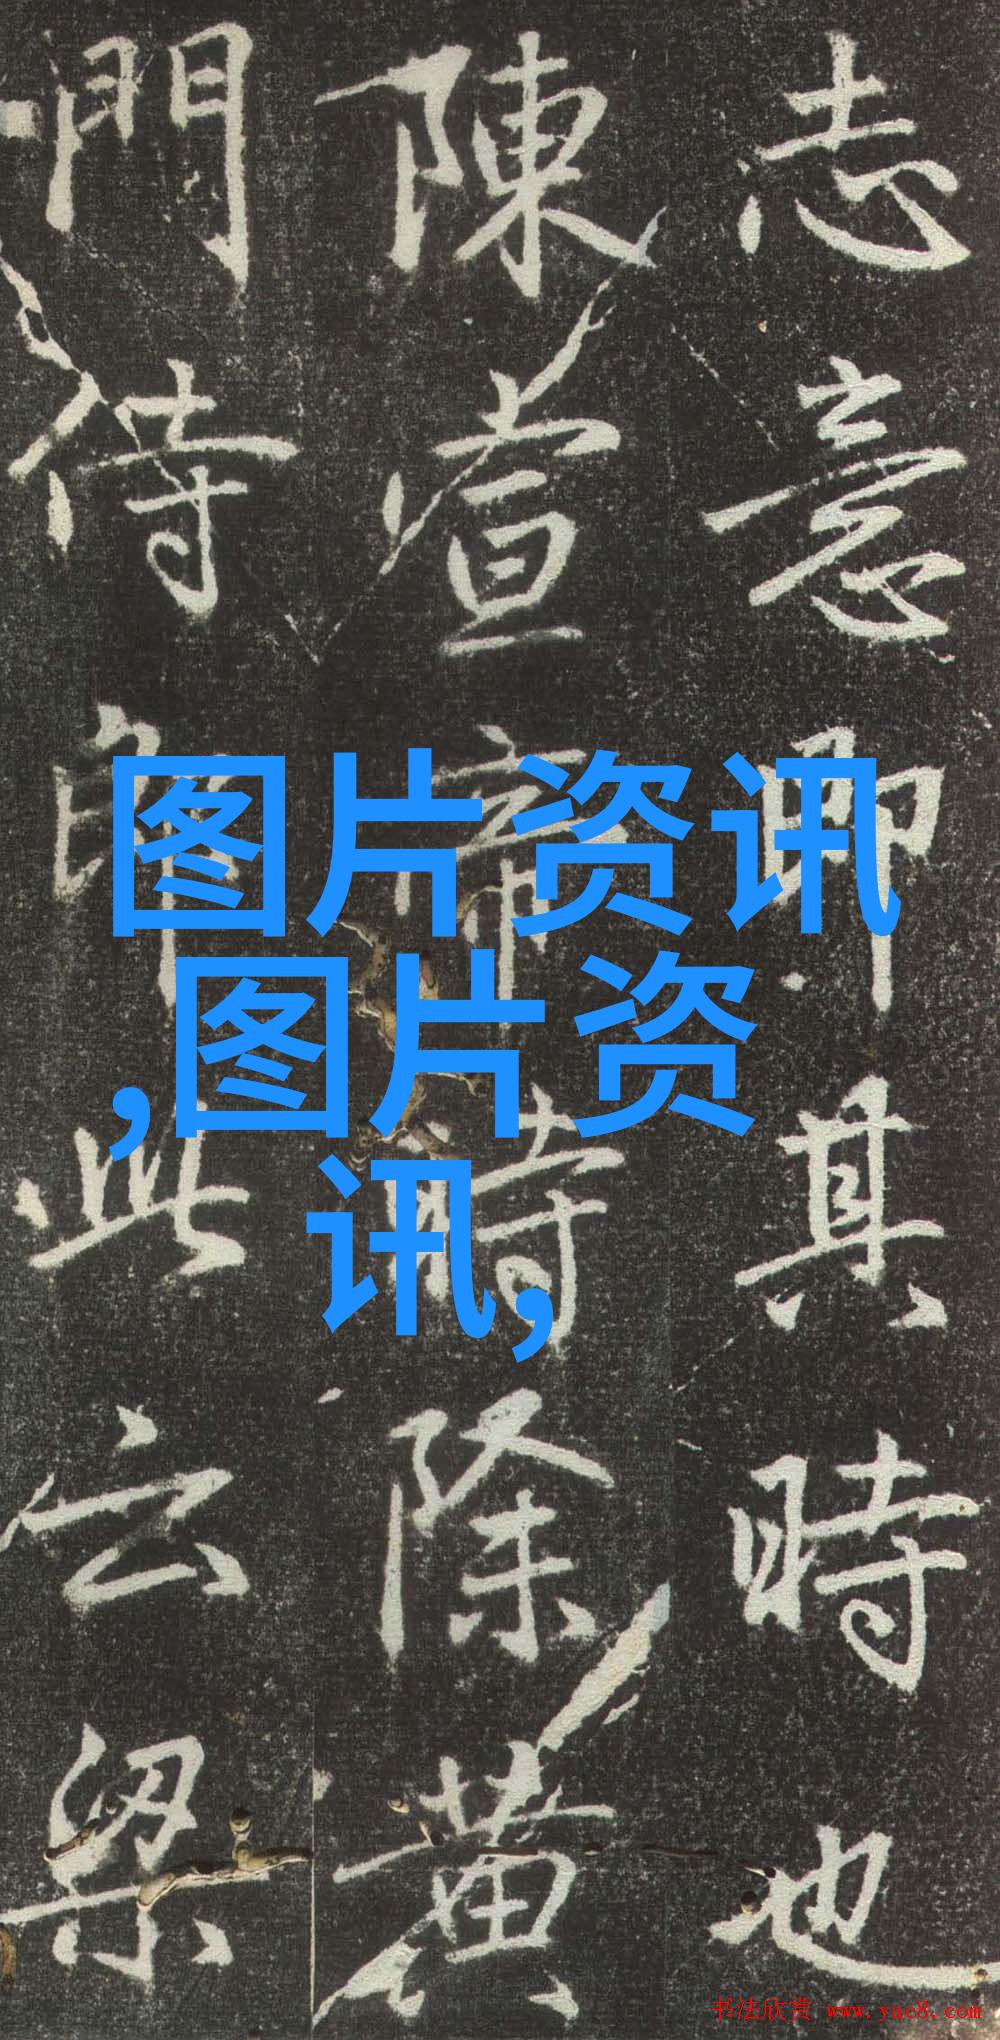 志意耶其時也
陳宣帝時除黄
門侍郎此云梁
图片资讯
,图片资
讯,
书法欣赏 www.yac8.com